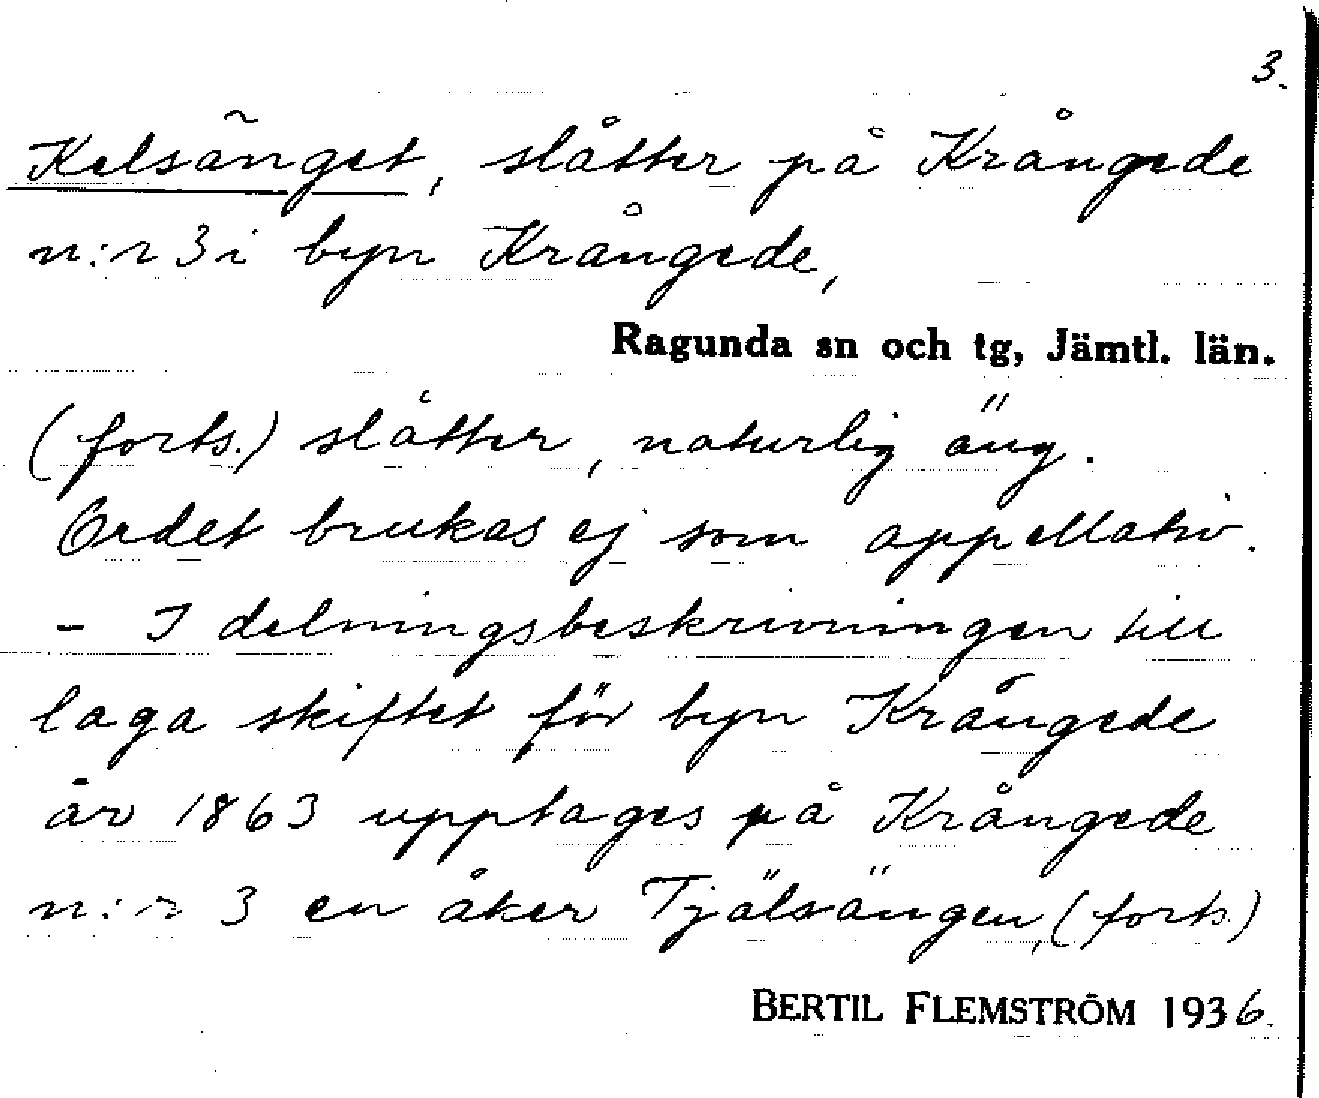 3.
Kelsänget, slåtter på Krångede
n:r 3 i byn Krångede,
Ragunda sn och tg, Jämtl. län.
(forts.) slåtter, naturlig äng.
Ordet brukas ej som appellativ.
- I delningsbeskrivningen till
laga skiftet för byn Krångede
år 1863 upptages på Krångede
n:r 3 en åker Tjälsängen, (forts.)
BERTIL FLEMSTRÖM 1936.